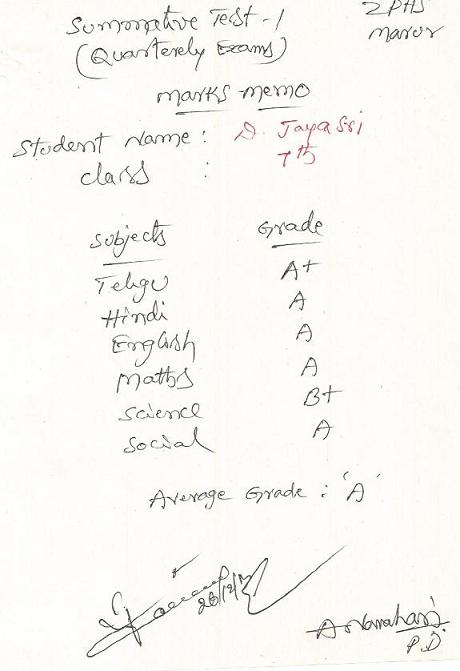 Summative Test-1
ZPHS
(Quarterely Exams)
Marur
Marks Memo
Student Name : D. Jayasri
Class : 7th
Subjects Grade
Telugu A+
Hindi A
English A
Maths A
Science B+
Social A
Average Grade : 'A'
P.D.